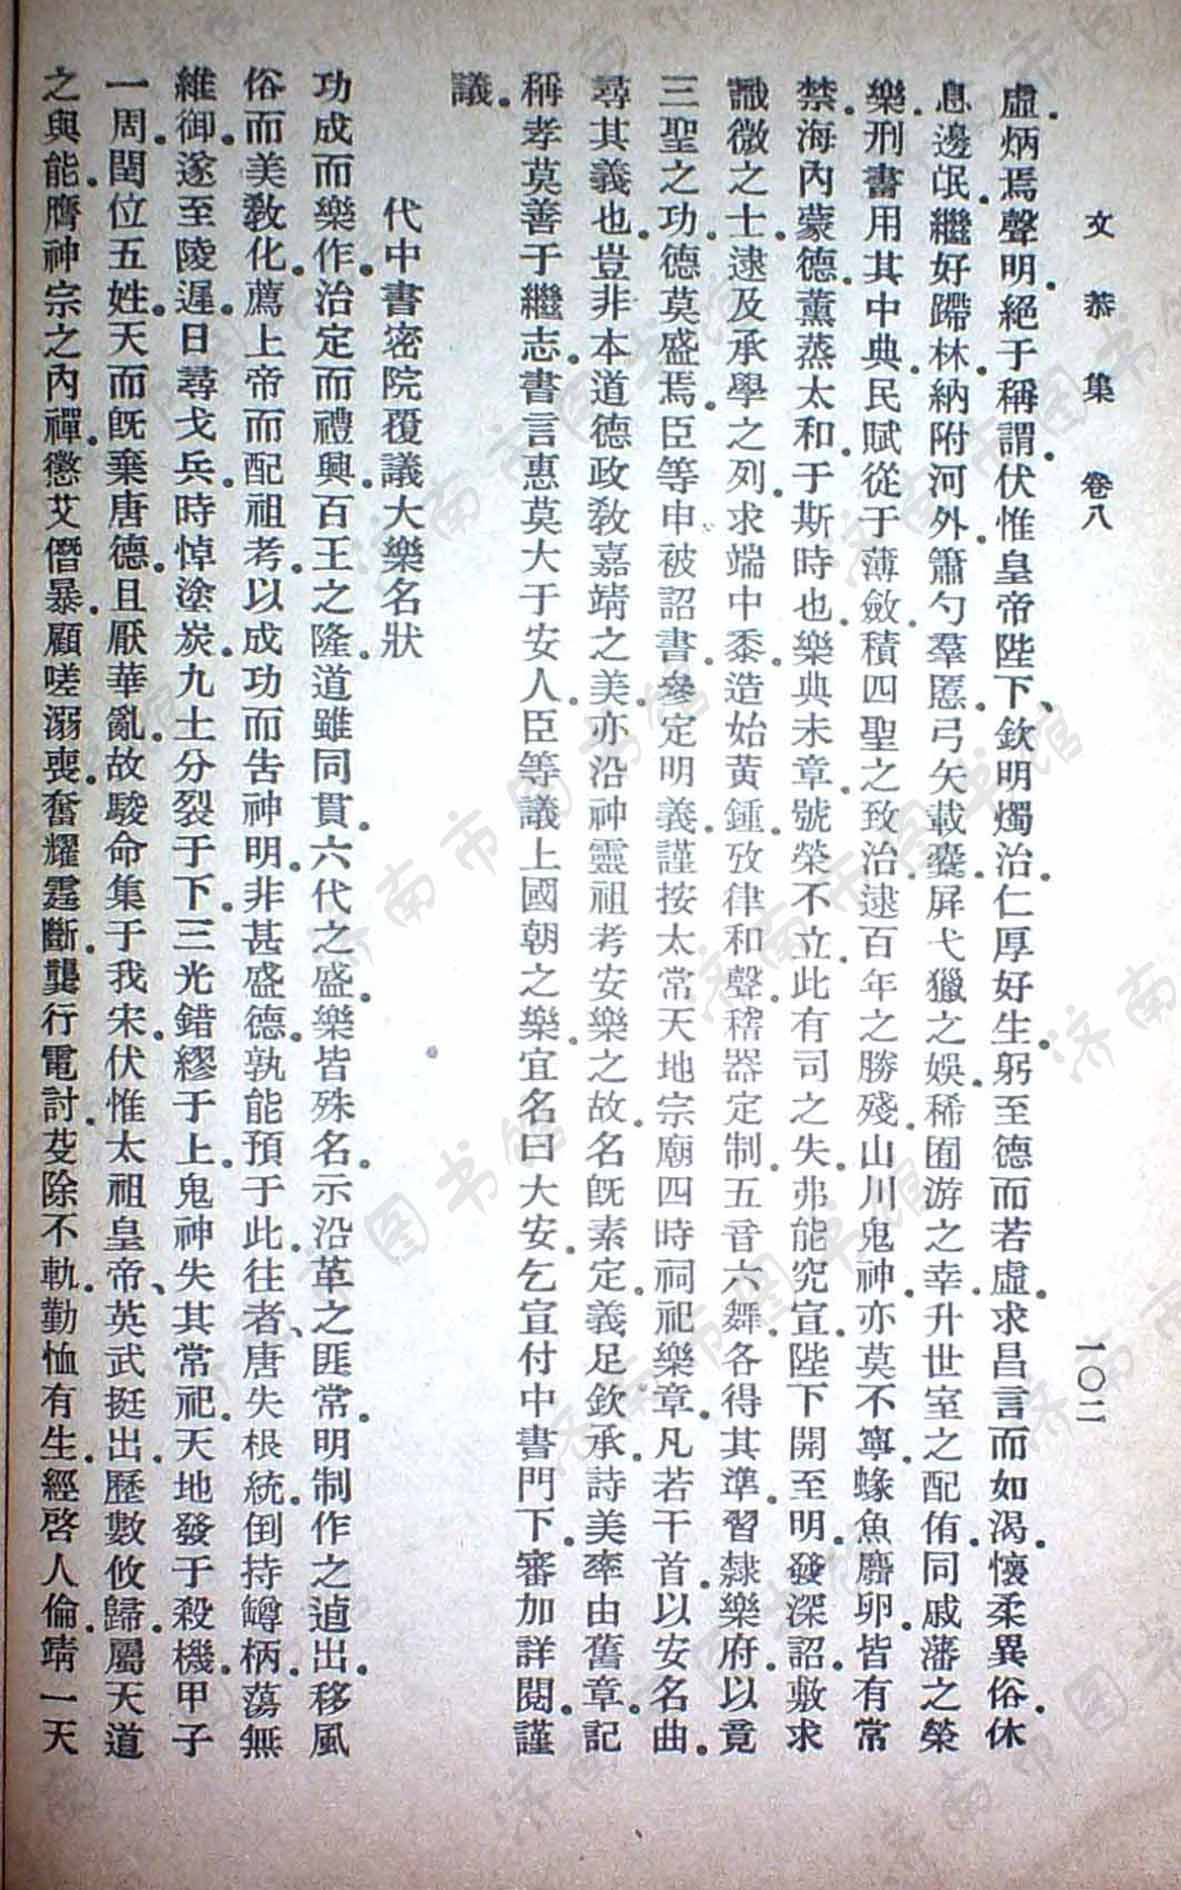 文恭集 卷八 一〇二
虛。炳焉聲明。絕于稱謂。伏惟皇帝陛下、欽明燭治。仁厚好生。躬至德而若虛。求昌言而如渴。懷柔異俗。休
息邊氓。繼好蹛林。納附河外。簫勺羣慝。弓矢載櫜。屏弋獵之娛。稀囿游之幸。升世室之配侑。同戚藩之榮
樂。刑書用其中典。民賦從于薄斂。積四聖之致治。逮百年之勝殘。山川鬼神。亦莫不寧。蝝魚麛卵。皆有常
禁。海內蒙德。薰蒸太和。于斯時也。樂典未章。號榮不立。此有司之失。弗能究宣。陛下開至明。發深詔。敷求
識微之士。逮及承學之列。求端中黍。造始黃鍾。攷律和聲。稽器定制。五音六舞。各得其準。習隸樂府。以竟
三聖之功。德莫盛焉。臣等申被詔書。參定明義。謹按太常天地宗廟四時祠祀樂章。凡若干首。以安名曲。
尋其義也。豈非本道德政敎嘉靖之美。亦沿神靈祖考安樂之故。名旣素定。義足欽承。詩美率由舊章。記
稱孝莫善于繼志。書言惠莫大于安人。臣等議上國朝之樂。宜名曰大安。乞宣付中書門下。審加詳閱。謹
議。
代中書密院覆議大樂名狀
功成而樂作。治定而禮興。百王之隆。道雖同貫。六代之盛。樂皆殊名。示沿革之匪常。明制作之逌出。移風
俗而美敎化。薦上帝而配祖考。以成功而告神明。非甚盛德。孰能預于此。往者、唐失根統。倒持罇柄。蕩無
維御。遂至陵遲。日尋戈兵。時悼塗炭。九土分裂于下。三光錯繆于上。鬼神失其常祀。天地發于殺機。甲子
一周。閏位五姓。天而旣棄唐德。且厭華亂。故駿命集于我宋。伏惟太祖皇帝、英武挺出。歷數攸歸。屬天道
之與能。膺神宗之內禪。懲艾僭暴。顧嗟溺喪。奮耀霆斷。龔行電討。芟除不軌。勤恤有生。經啓人倫。靖一天